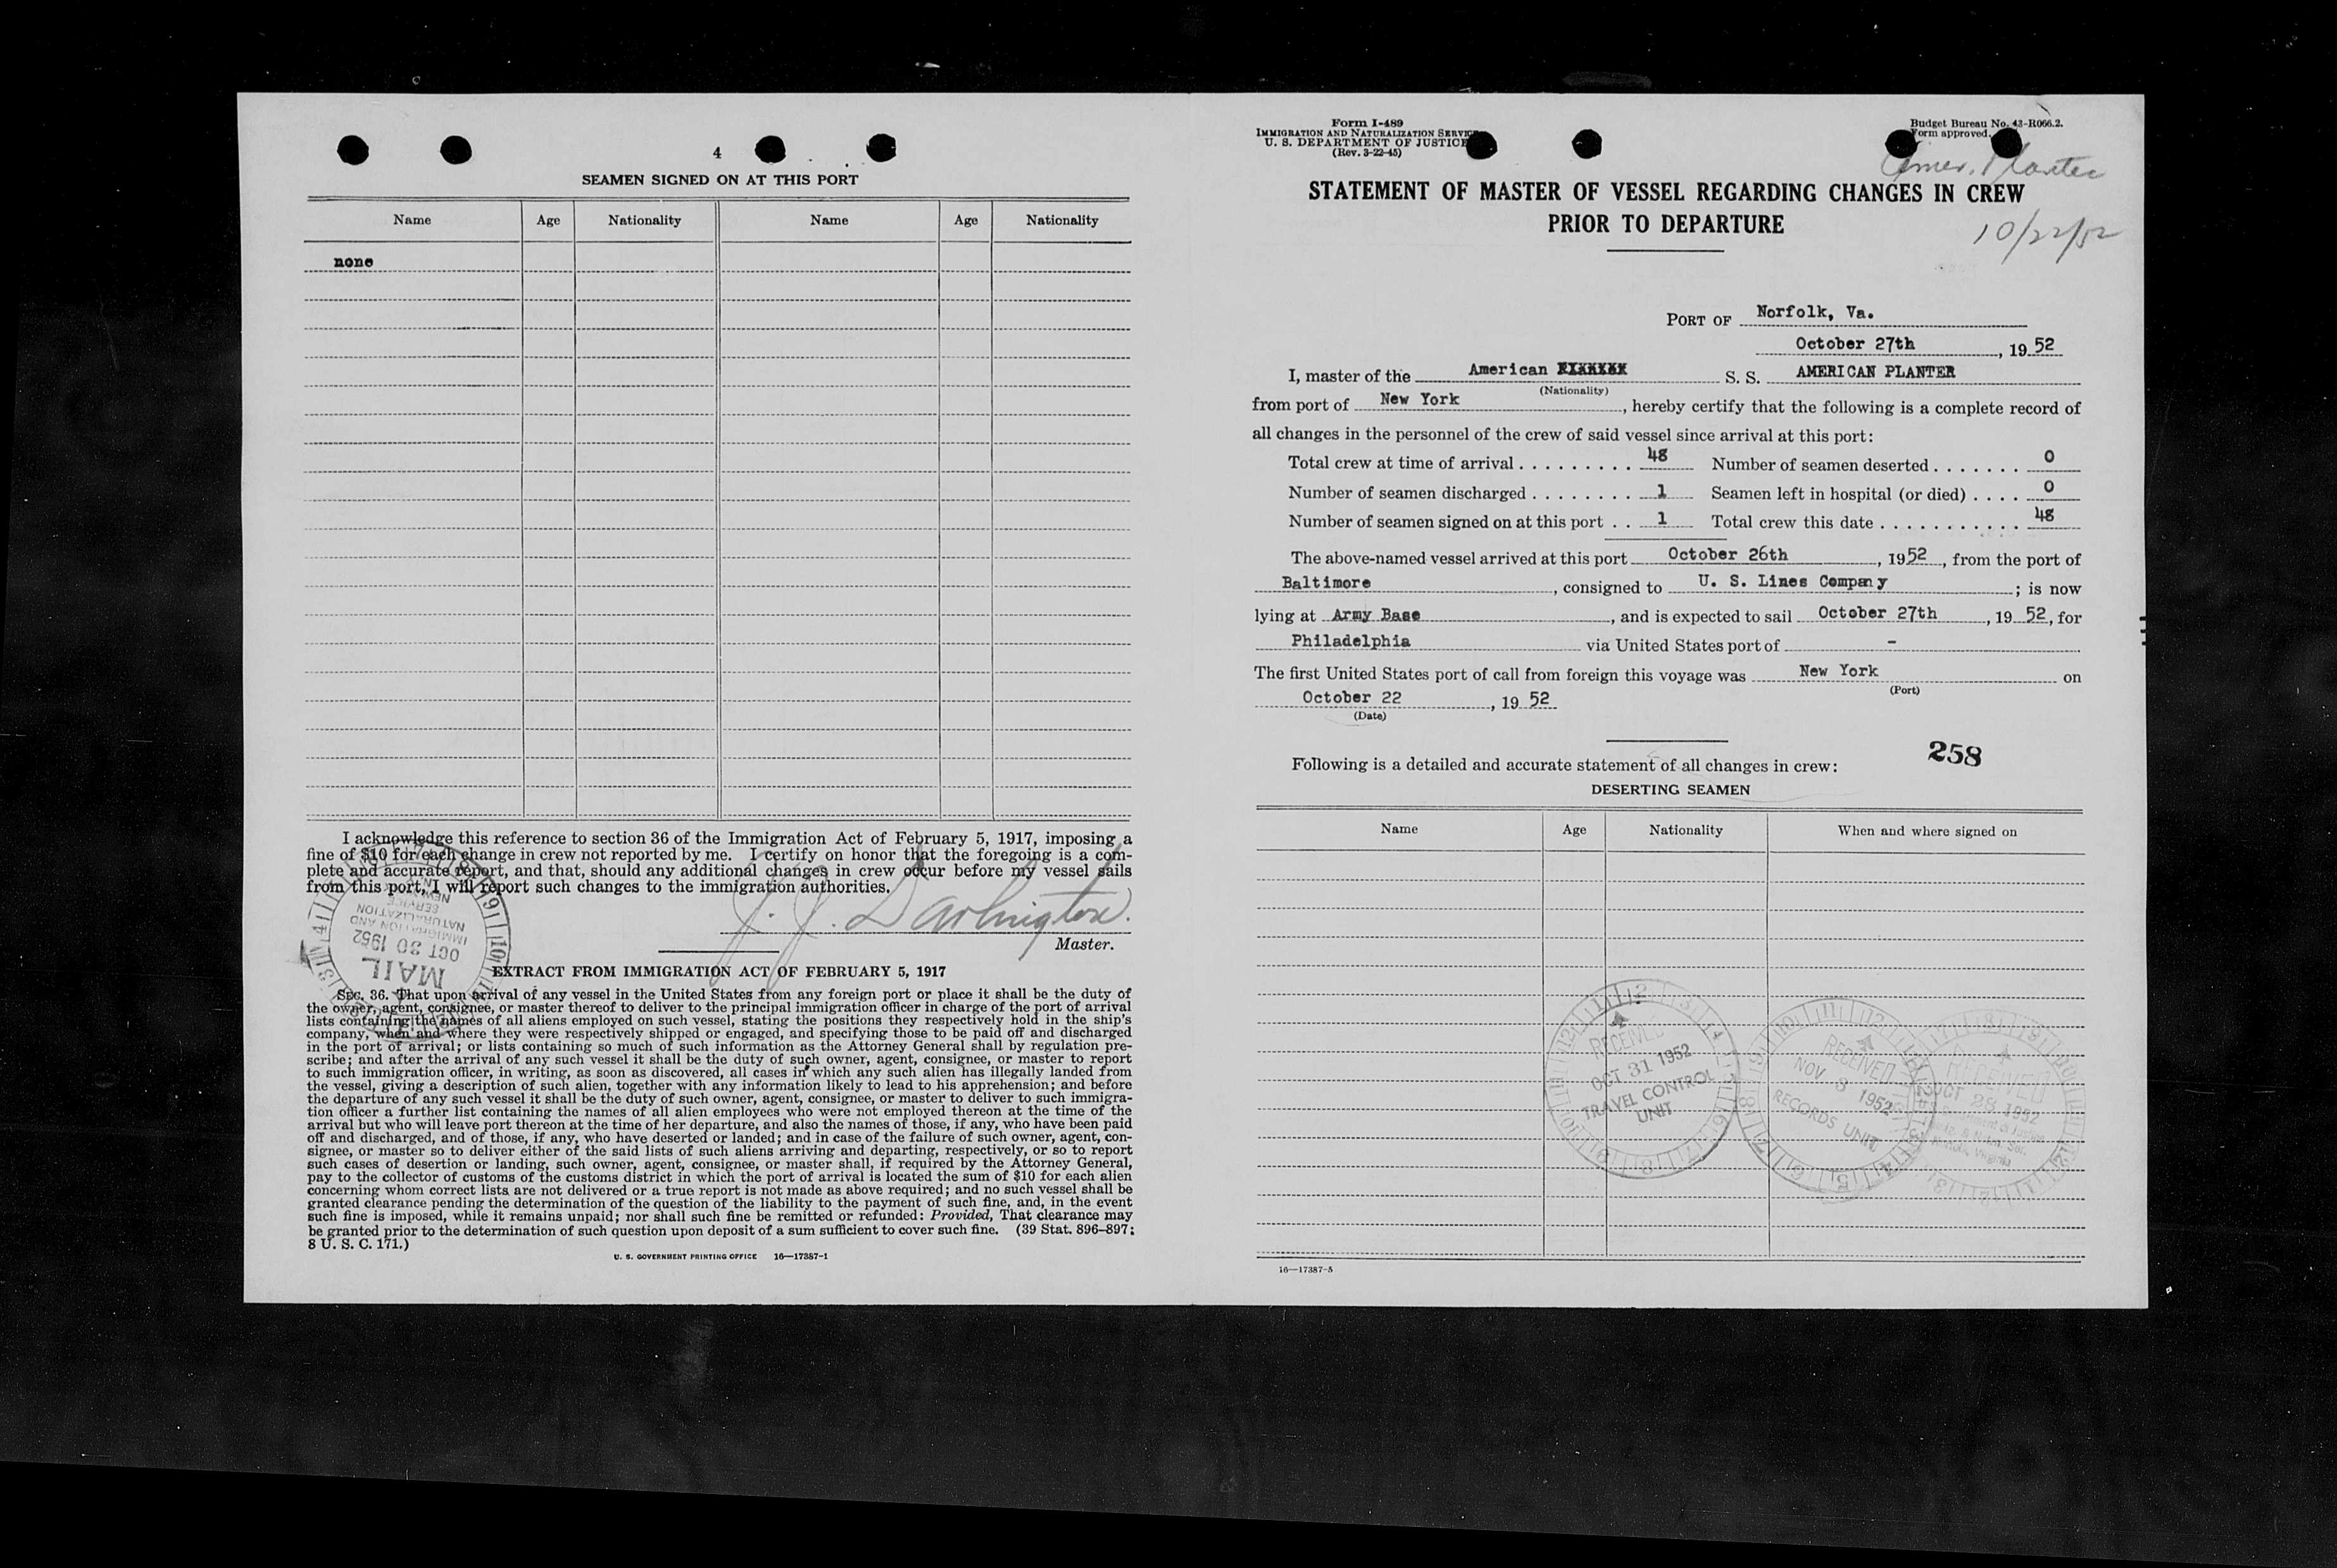 4
SEAMEN SIGNED ON AT THIS PORT
Name Age Nationality Name Age Nationality
none
I acknowledge this reference to section 36 of the Immigration Act of February 5, 1917, imposing a
fine of $10 for each change in crew not reported by me. I certify on honor that the foregoing is a com-
plete and accurate report, and that, should any additional changes in crew occur before my vessel sails
from this port, I will report such changes to the immigration authorities.
J. J. Darlington.
Master.
MAIL
OCT 30 1952
IMMIGRATION AND
NATURALIZATION
SERVICE
EXTRACT FROM IMMIGRATION ACT OF FEBRUARY 5, 1917
SEC. 36. That upon arrival of any vessel in the United States from any foreign port or place it shall be the duty of
the owner, agent, consignee, or master thereof to deliver to the principal immigration officer in charge of the port of arrival
lists containing the names of all aliens employed on such vessel, stating the positions they respectively hold in the ship's
company, when and where they were respectively shipped or engaged, and specifying those to be paid off and discharged
in the port of arrival; or lists containing so much of such information as the Attorney General shall by regulation pre-
scribe; and after the arrival of any such vessel it shall be the duty of such owner, agent, consignee, or master to report
to such immigration officer, in writing, as soon as discovered, all cases in which any such alien has illegally landed from
the vessel, giving a description of such alien, together with any information likely to lead to his apprehension; and before
the departure of any such vessel it shall be the duty of such owner, agent, consignee, or master to deliver to such immigra-
tion officer a further list containing the names of all alien employees who were not employed thereon at the time of the
arrival but who will leave port thereon at the time of her departure, and also the names of those, if any, who have been paid
off and discharged, and of those, if any, who have deserted or landed; and in case of the failure of such owner, agent, con-
signee, or master so to deliver either of the said lists of such aliens arriving and departing, respectively, or so to report
such cases of desertion or landing, such owner, agent, consignee, or master shall, if required by the Attorney General,
pay to the collector of customs of the customs district in which the port of arrival is located the sum of $10 for each alien
concerning whom correct lists are not delivered or a true report is not made as above required; and no such vessel shall be
granted clearance pending the determination of the question of the liability to the payment of such fine, and, in the event
such fine is imposed, while it remains unpaid; nor shall such fine be remitted or refunded: Provided, That clearance may
be granted prior to the determination of such question upon deposit of a sum sufficient to cover such fine. (39 Stat. 896-897;
8 U. S. C. 171.)
U. S. GOVERNMENT PRINTING OFFICE 16—17387-1
Form I-489
IMMIGRATION AND NATURALIZATION SERVICE
U. S. DEPARTMENT OF JUSTICE
(Rev. 3-22-45)
Budget Bureau No. 43-R066.2.
Form approved.
Amer. Planter
STATEMENT OF MASTER OF VESSEL REGARDING CHANGES IN CREW
PRIOR TO DEPARTURE
10/22/52
PORT OF Norfolk, Va.
October 27th, 19 52
I, master of the American S. S. AMERICAN PLANTER
(Nationality)
from port of New York, hereby certify that the following is a complete record of
all changes in the personnel of the crew of said vessel since arrival at this port:
Total crew at time of arrival 48 Number of seamen deserted 0
Number of seamen discharged 1 Seamen left in hospital (or died) 0
Number of seamen signed on at this port 1 Total crew this date 48
The above-named vessel arrived at this port October 26th, 1952, from the port of
Baltimore, consigned to U. S. Lines Company; is now
lying at Army Base, and is expected to sail October 27th, 19 52, for
Philadelphia via United States port of -
The first United States port of call from foreign this voyage was New York on
(Port)
October 22, 19 52
(Date)
258
Following is a detailed and accurate statement of all changes in crew:
DESERTING SEAMEN
Name Age Nationality When and where signed on
RECEIVED
OCT 31 1952
TRAVEL CONTROL
UNIT
RECEIVED
NOV 3 1952
RECORDS UNIT
RECEIVED
OCT 28 1952
16—17387-5